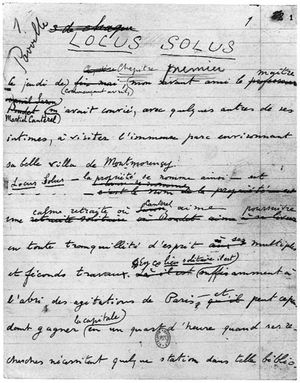 1.
1
1
Rouille
LOCUS SOLUS
Chapitre premier
le jeudi de mon savant ami le maître
(commençant avril)
Martial Canterel m'avait convié, avec quelques autres de ses
intimes, à visiter l'immense parc environnant
sa belle villa de Montmorency.
Locus Solus – la propriété se nomme ainsi – est
calme retraite où Canterel aime poursuivre
en toute tranquillité d'esprit ses multiples
et féconds travaux. En ce lieu solitaire il est suffisamment à
l'abri des agitations de Paris, et peut cepen
dant gagner la capitale en un quart d'heure quand ses re
cherches nécessitent quelque station dans telle biblio